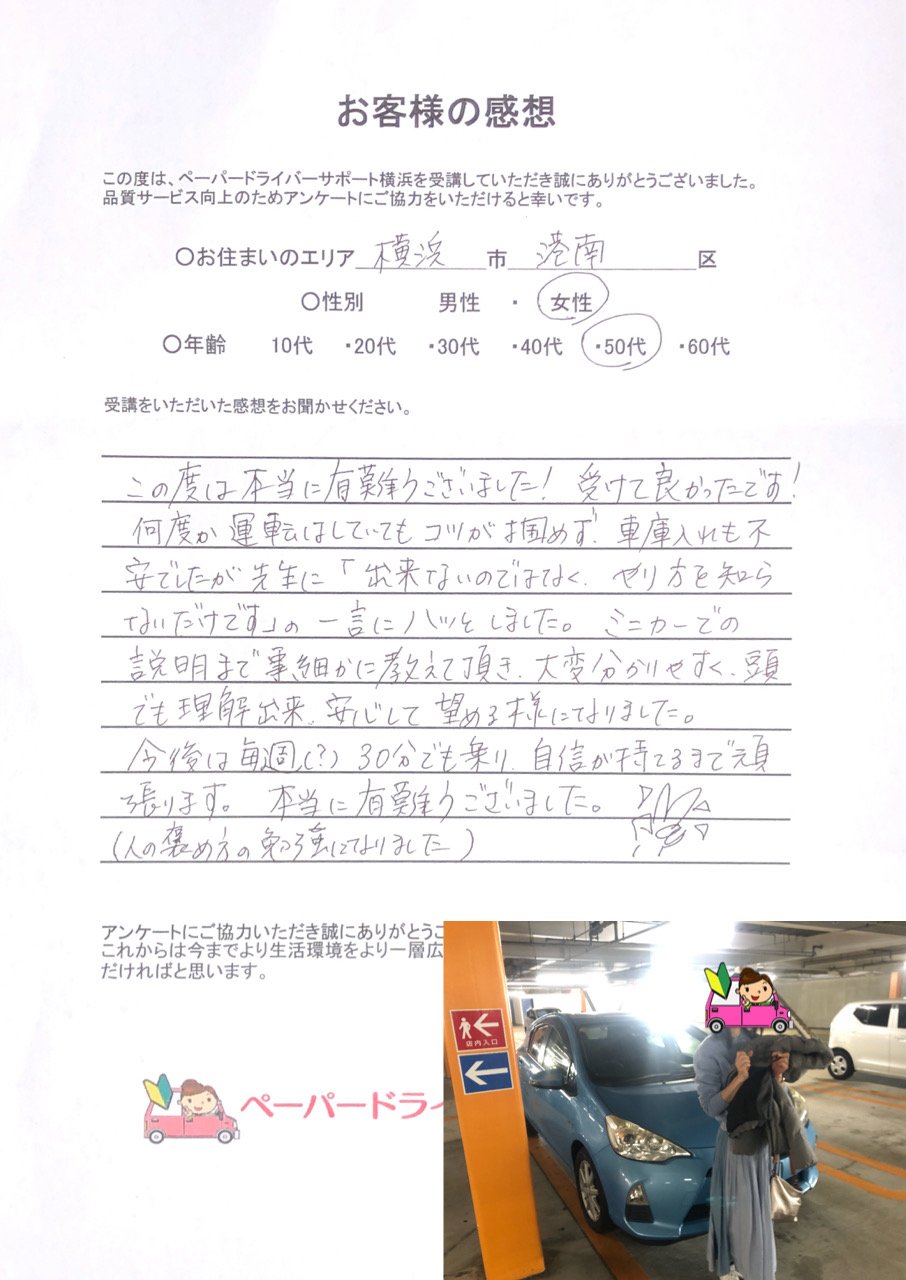 お客様の感想
この度は、ペーパードライバーサポート横浜を受講していただき誠にありがとうございました。
品質サービス向上のためアンケートにご協力をいただけると幸いです。
〇お住まいのエリア 横浜 市 港南 区
〇性別 男性 ・ 女性
〇年齢 10代 ・20代 ・30代 ・40代 ・50代 ・60代
受講をいただいた感想をお聞かせください。
この度は本当に有難うございました! 受けて良かったです!
何度か運転はしていてもコツが掴めず、車庫入れも不
安でしたが先生に「出来ないのではなく、やり方を知ら
ないだけです」の一言にハッとしました。ミニカーでの
説明まで事細かに教えて頂き、大変分かりやすく、頭
でも理解出来、安心して望める様になりました。
今後は毎週(?)30分でも乗り、自信が持てるまで頑
張ります。本当に有難うございました。
(人の褒め方の勉強になりました)
アンケートにご協力いただき誠にありがとうご
これからは今までより生活環境をより一層広
だければと思います。
ペーパードライ
店内入口